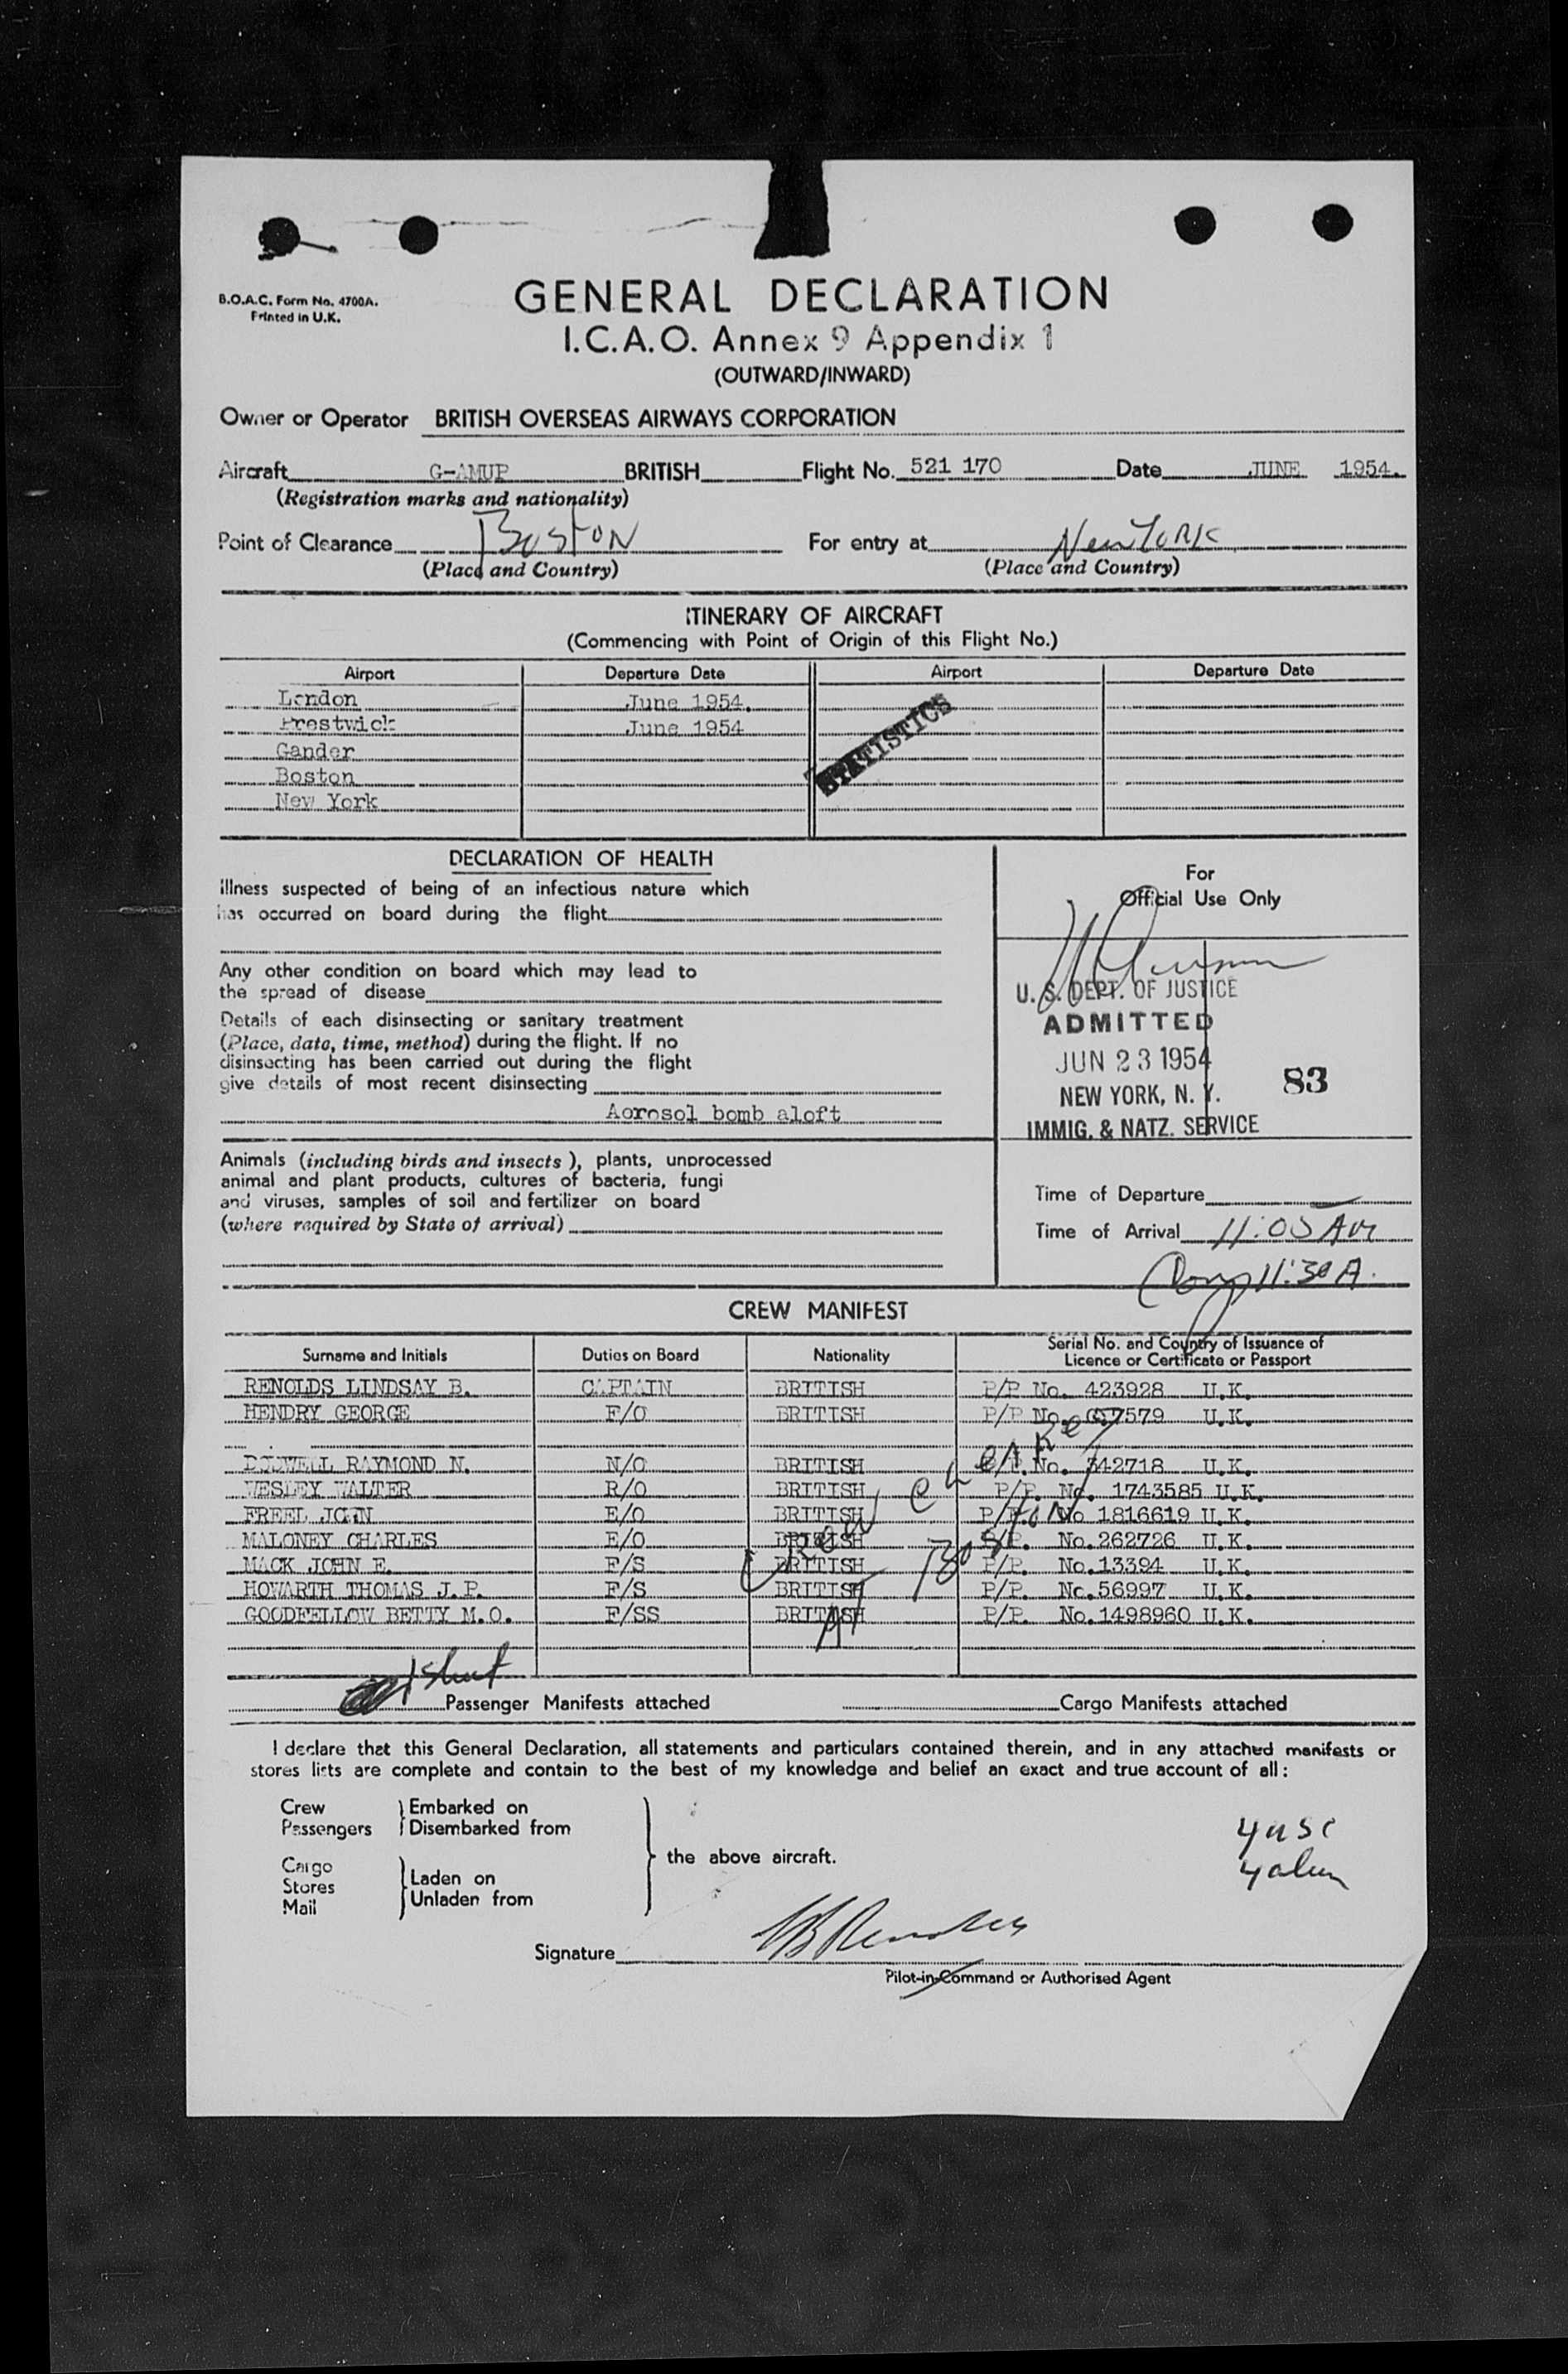 B.O.A.C. Form No. 4700A.
Printed in U.K.
GENERAL DECLARATION
I.C.A.O. Annex 9 Appendix 1
(OUTWARD/INWARD)
Owner or Operator BRITISH OVERSEAS AIRWAYS CORPORATION
Aircraft G-AMUP BRITISH Flight No. 521 170 Date JUNE 1954.
(Registration marks and nationality)
Point of Clearance Boston For entry at New York
(Place and Country) (Place and Country)
ITINERARY OF AIRCRAFT
(Commencing with Point of Origin of this Flight No.)
Airport Departure Date Airport Departure Date
London June 1954.
Prestwick June 1954
Gander
Boston
New York
STATISTICS
DECLARATION OF HEALTH
Illness suspected of being of an infectious nature which
has occurred on board during the flight
Any other condition on board which may lead to
the spread of disease
Details of each disinsecting or sanitary treatment
(Place, date, time, method) during the flight. If no
disinsecting has been carried out during the flight
give details of most recent disinsecting
Aerosol bomb aloft
Animals (including birds and insects), plants, unprocessed
animal and plant products, cultures of bacteria, fungi
and viruses, samples of soil and fertilizer on board
(where required by State of arrival)
For
Official Use Only
U. S. DEPT. OF JUSTICE
ADMITTED
JUN 23 1954
NEW YORK, N. Y.
IMMIG. & NATZ. SERVICE
83
Time of Departure
Time of Arrival 11:05 AM
11:30 A.
CREW MANIFEST
Surname and Initials Duties on Board Nationality Serial No. and Country of Issuance of
Licence or Certificate or Passport
RENOLDS LINDSAY B. CAPTAIN BRITISH P/P No. 423928 U.K.
HENDRY GEORGE F/O BRITISH P/P No. 7579 U.K.
RAYMOND N. N/O BRITISH No. 342718 U.K.
WESLEY WALTER R/O BRITISH P/P. No. 1743585 U.K.
FREEL JOHN E/O BRITISH P/P. No 1816619 U.K.
MALONEY CHARLES E/O BRITISH P/P. No. 262726 U.K.
MACK JOHN E. F/S BRITISH P/P. No. 13394 U.K.
HOWARTH THOMAS J.P. F/S BRITISH P/P. No. 56997 U.K.
GOODFELLOW BETTY M.O. F/SS BRITISH P/P. No. 1498960 U.K.
Crew checked
AT Boston
1 sheet Passenger Manifests attached Cargo Manifests attached
I declare that this General Declaration, all statements and particulars contained therein, and in any attached manifests or
stores lists are complete and contain to the best of my knowledge and belief an exact and true account of all:
Crew
Passengers
Embarked on
Disembarked from
Cargo
Stores
Mail
Laden on
Unladen from
the above aircraft.
4 usc
4 alien
Signature LB Renolds
Pilot-in-Command or Authorised Agent